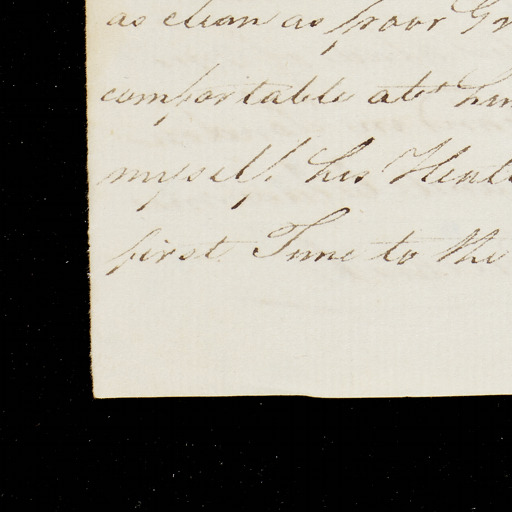 as clean as poor Gr
comfortable abt him
myself, his Healt
first Time to the